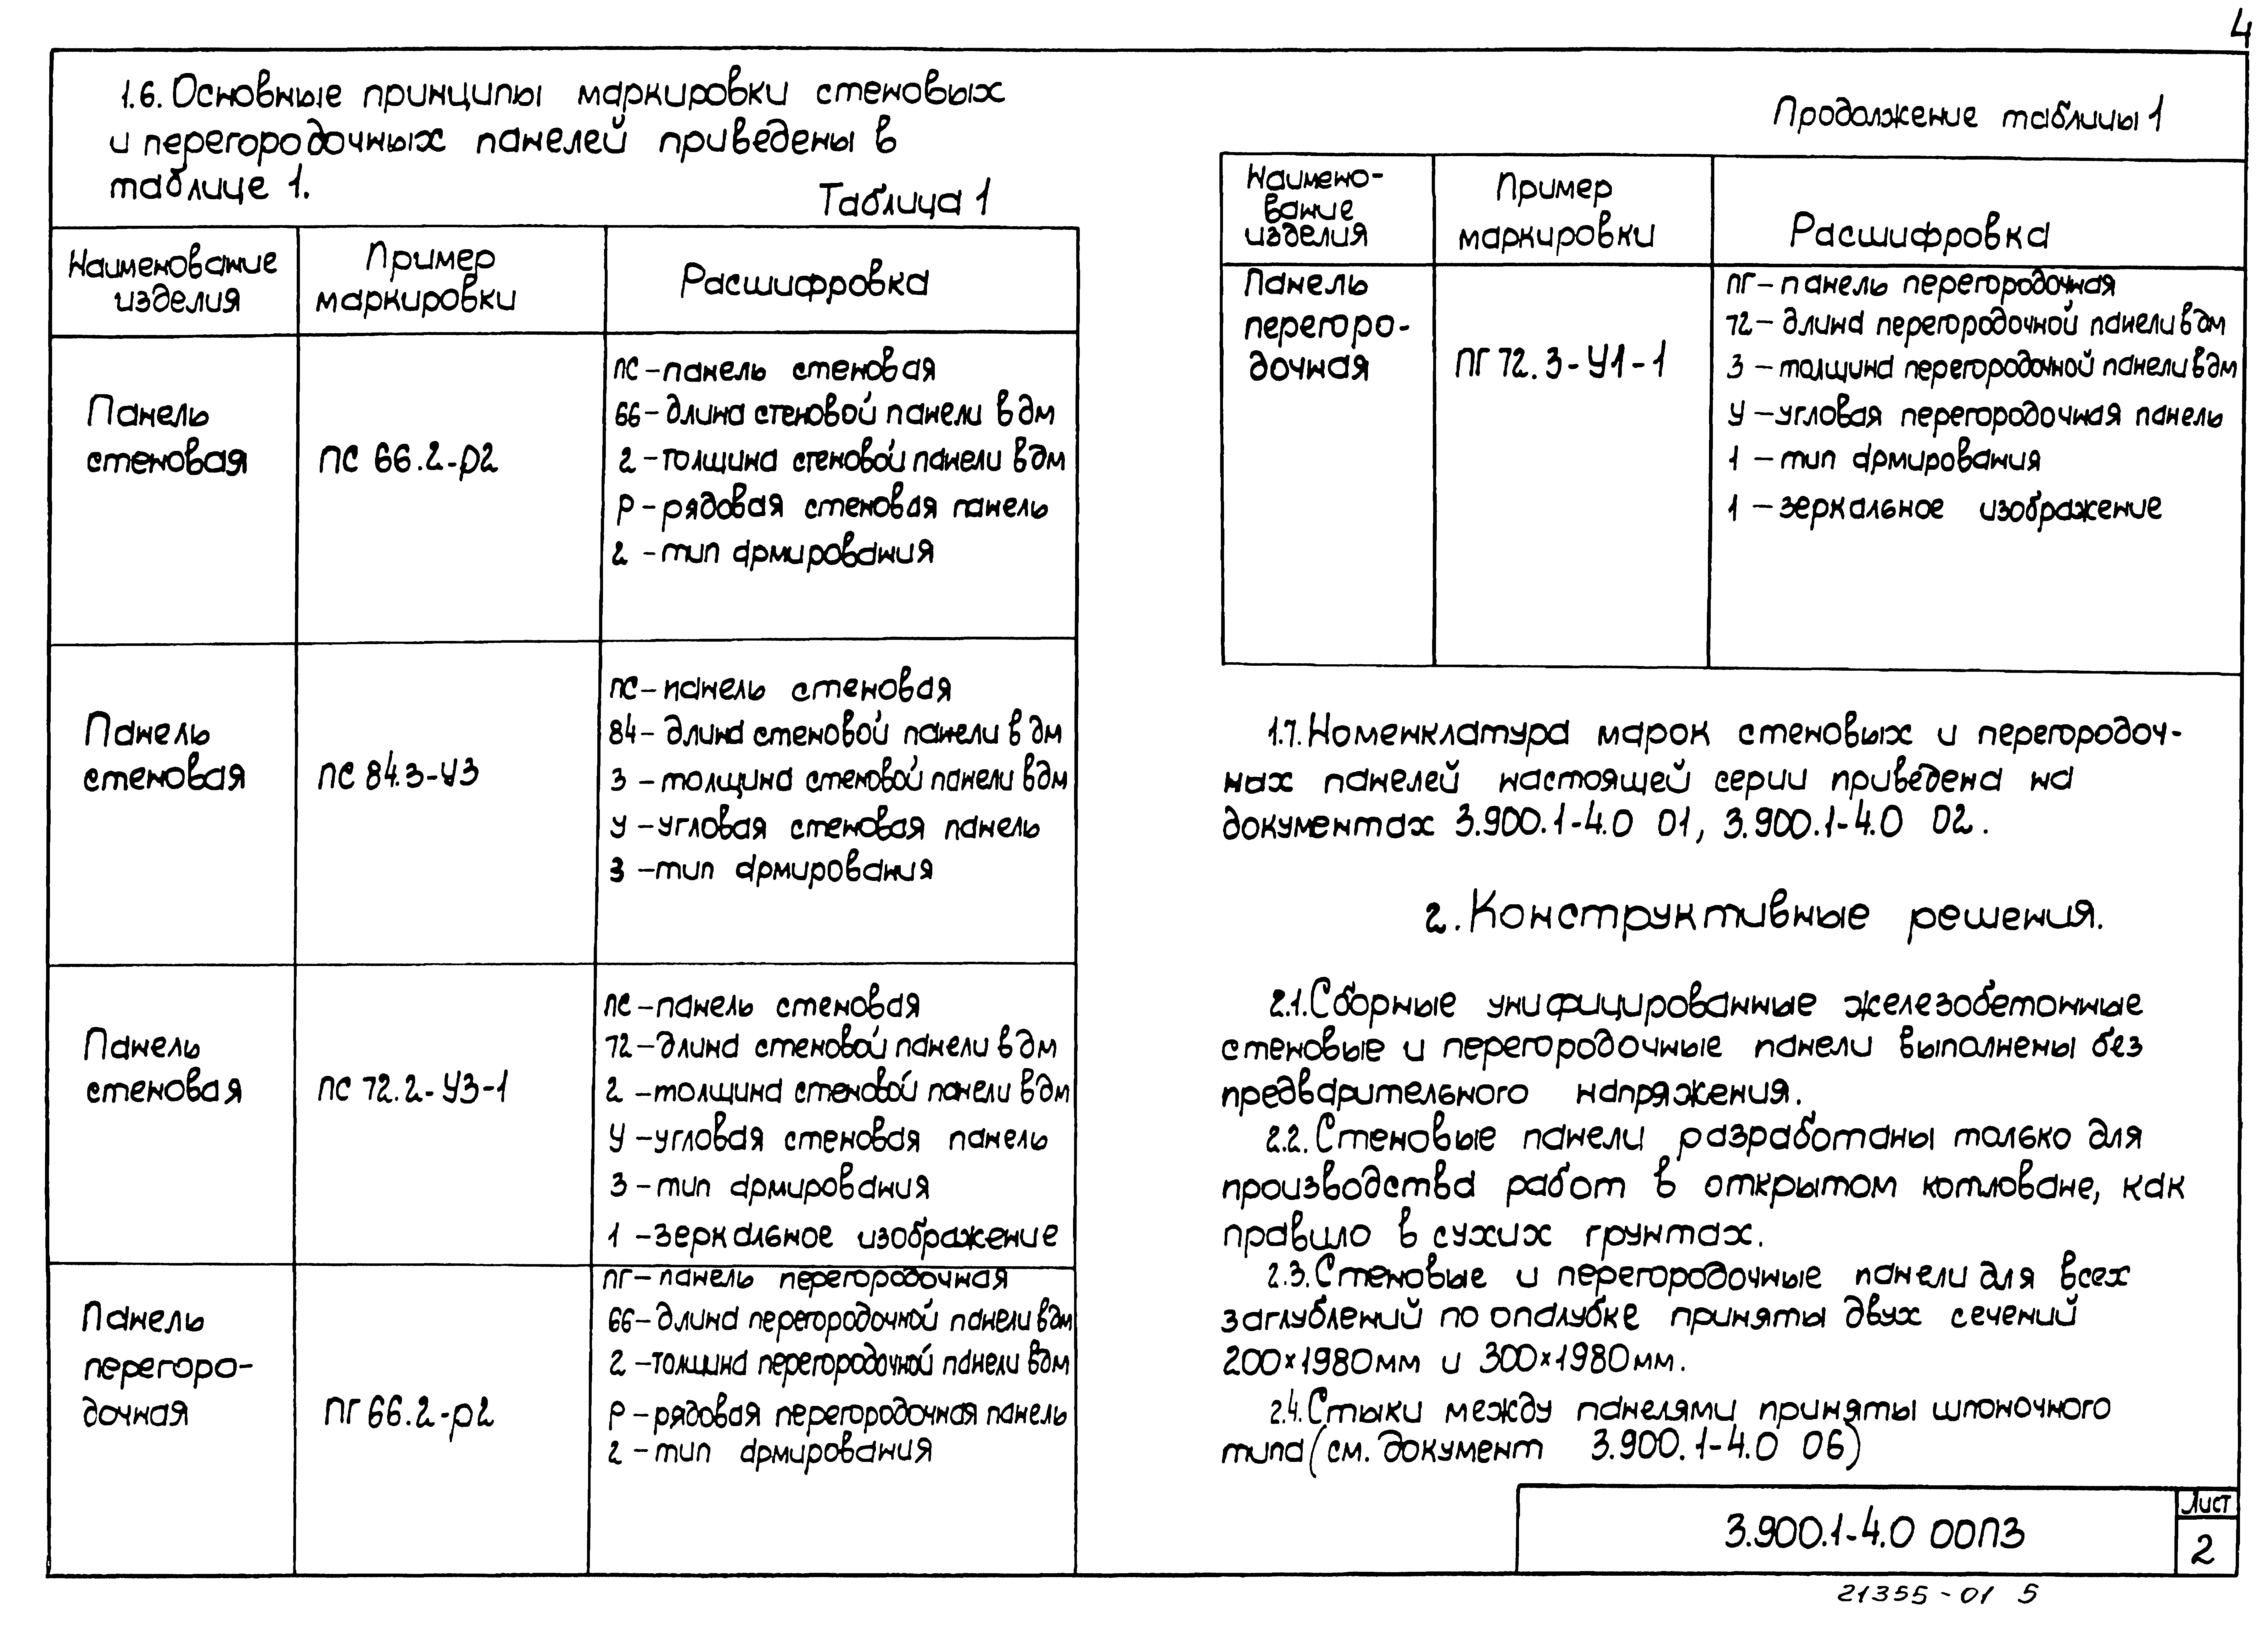 4
1.6. Основные принципы маркировки стеновых
и перегородочных панелей приведены в
таблице 1.
Таблица 1
Наименование
изделия
Пример
маркировки
Расшифровка
Панель
стеновая
ПС 66.2-р2
ПС – панель стеновая
66 – длина стеновой панели в дм
2 – толщина стеновой панели в дм
Р – рядовая стеновая панель
2 – тип армирования
Панель
стеновая
ПС 84.3-У3
ПС – панель стеновая
84 – длина стеновой панели в дм
3 – толщина стеновой панели в дм
У – угловая стеновая панель
3 – тип армирования
Панель
стеновая
ПС 72.2-У3-1
ПС – панель стеновая
72 – длина стеновой панели в дм
2 – толщина стеновой панели в дм
У – угловая стеновая панель
3 – тип армирования
1 – зеркальное изображение
Панель
перегоро-
дочная
ПГ 66.2-р2
ПГ – панель перегородочная
66 – длина перегородочной панели в дм
2 – толщина перегородочной панели в дм
Р – рядовая перегородочная панель
2 – тип армирования
Продолжение таблицы 1
Наимено-
вание
изделия
Пример
маркировки
Расшифровка
Панель
перегоро-
дочная
ПГ 72.3-У1-1
ПГ – панель перегородочная
72 – длина перегородочной панели в дм
3 – толщина перегородочной панели в дм
У – угловая перегородочная панель
1 – тип армирования
1 – зеркальное изображение
1.7. Номенклатура марок стеновых и перегородоч-
нах панелей настоящей серии приведена на
документах 3.900.1-4.0 01, 3.900.1-4.0 02.
2. Конструктивные решения.
2.1. Сборные унифицированные железобетонные
стеновые и перегородочные панели выполнены без
предварительного напряжения.
2.2. Стеновые панели разработаны только для
производства работ в открытом котловане, как
правило в сухих грунтах.
2.3. Стеновые и перегородочные панели для всех
заглублений по опалубке приняты двух сечений
200×1980мм и 300×1980мм.
2.4. Стыки между панелями приняты шпоночного
типа (см. документ 3.900.1-4.0 06)
3.900.1-4.0 00ПЗ
Лист
2
21355-01 5